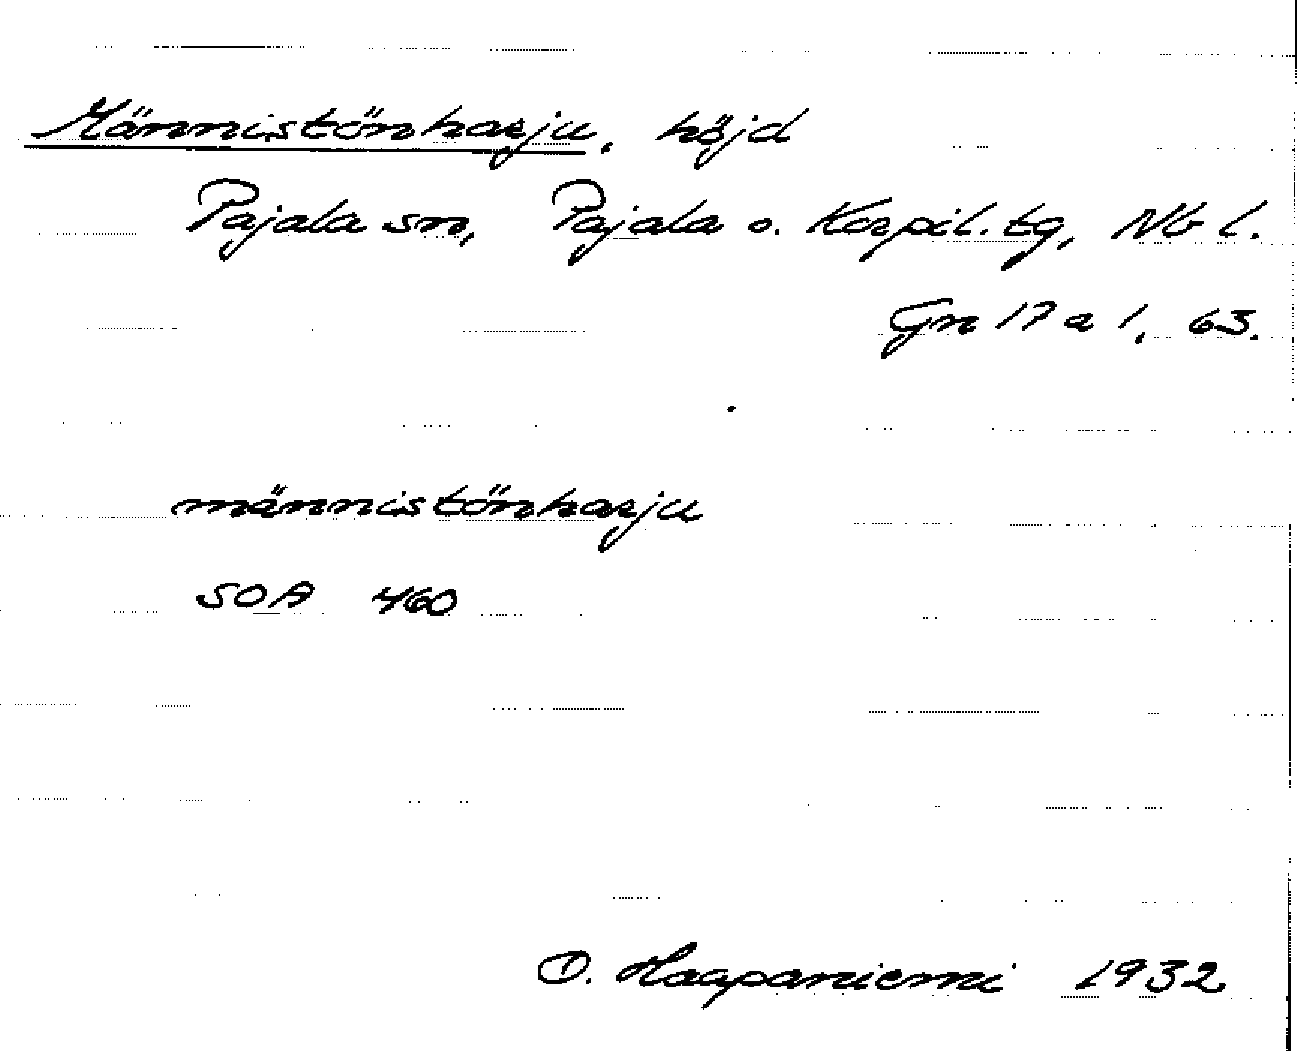 Männistönharju, höjd
Pajala sn, Pajala o. Korpil. tg, Nb l.
Gn 17 a 1, 63.
männistönharju
SOA 460
O. Haapaniemi 1932